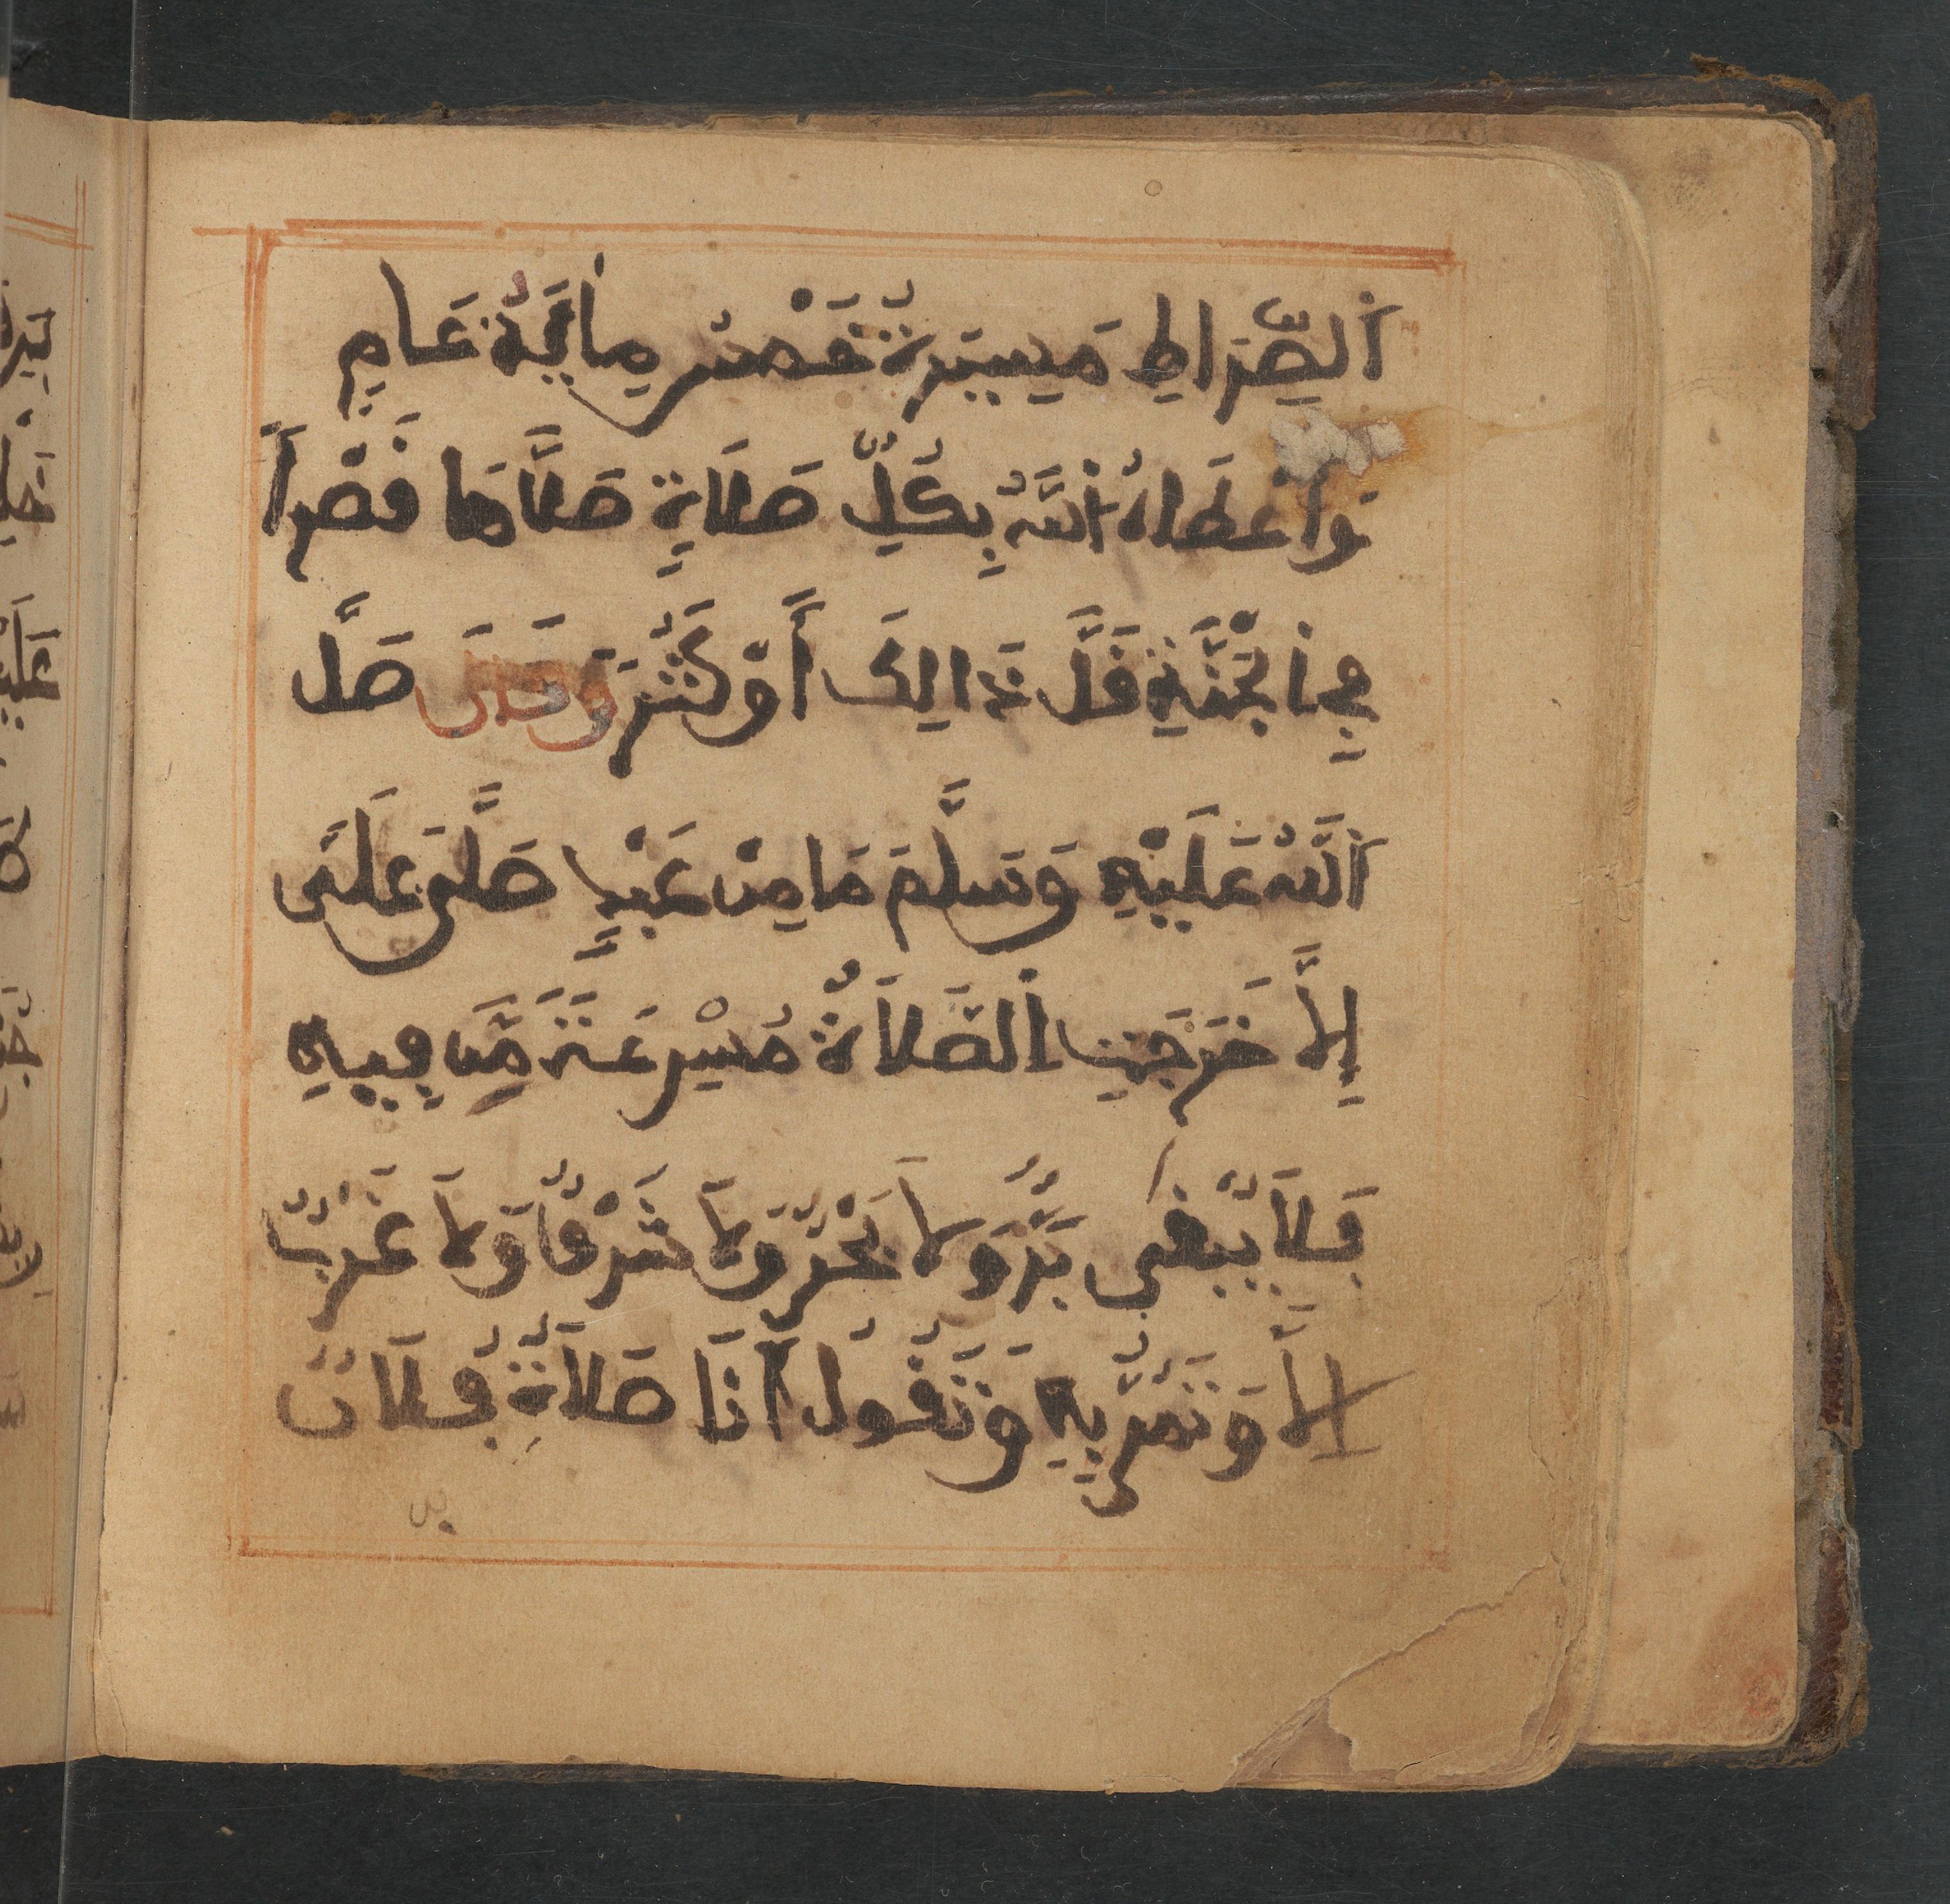 اَلصِّرَاطِ مَسِيرَةُ خَمْسِ مِائَةِ عَامٍ
وَأَعْطَاهُ اللَّهُ بِكُلِّ صَلَاةٍ صَلَّاهَا قَصْراً
فِي الْجَنَّةِ قَلَّ ذَالِكَ أَوْ كَثُرَ وَقَالَ صَلَّى
اللَّهُ عَلَيْهِ وَسَلَّمَ مَا مِنْ عَبْدٍ صَلَّى عَلَيَّ
إِلَّا خَرَجَتِ الصَّلَاةُ مُسْرِعَةً مِّن فِيهِ
فَلَا يَبْقَى بَرٌّ وَلَا بَحْرٌ وَلَا شَرْقٌ وَلَا غَرْبٌ
إِلَّا وَتَمُرُّ بِهِ وَتَقُولُ أَنَا صَلَاةُ فُلَانِ
بن